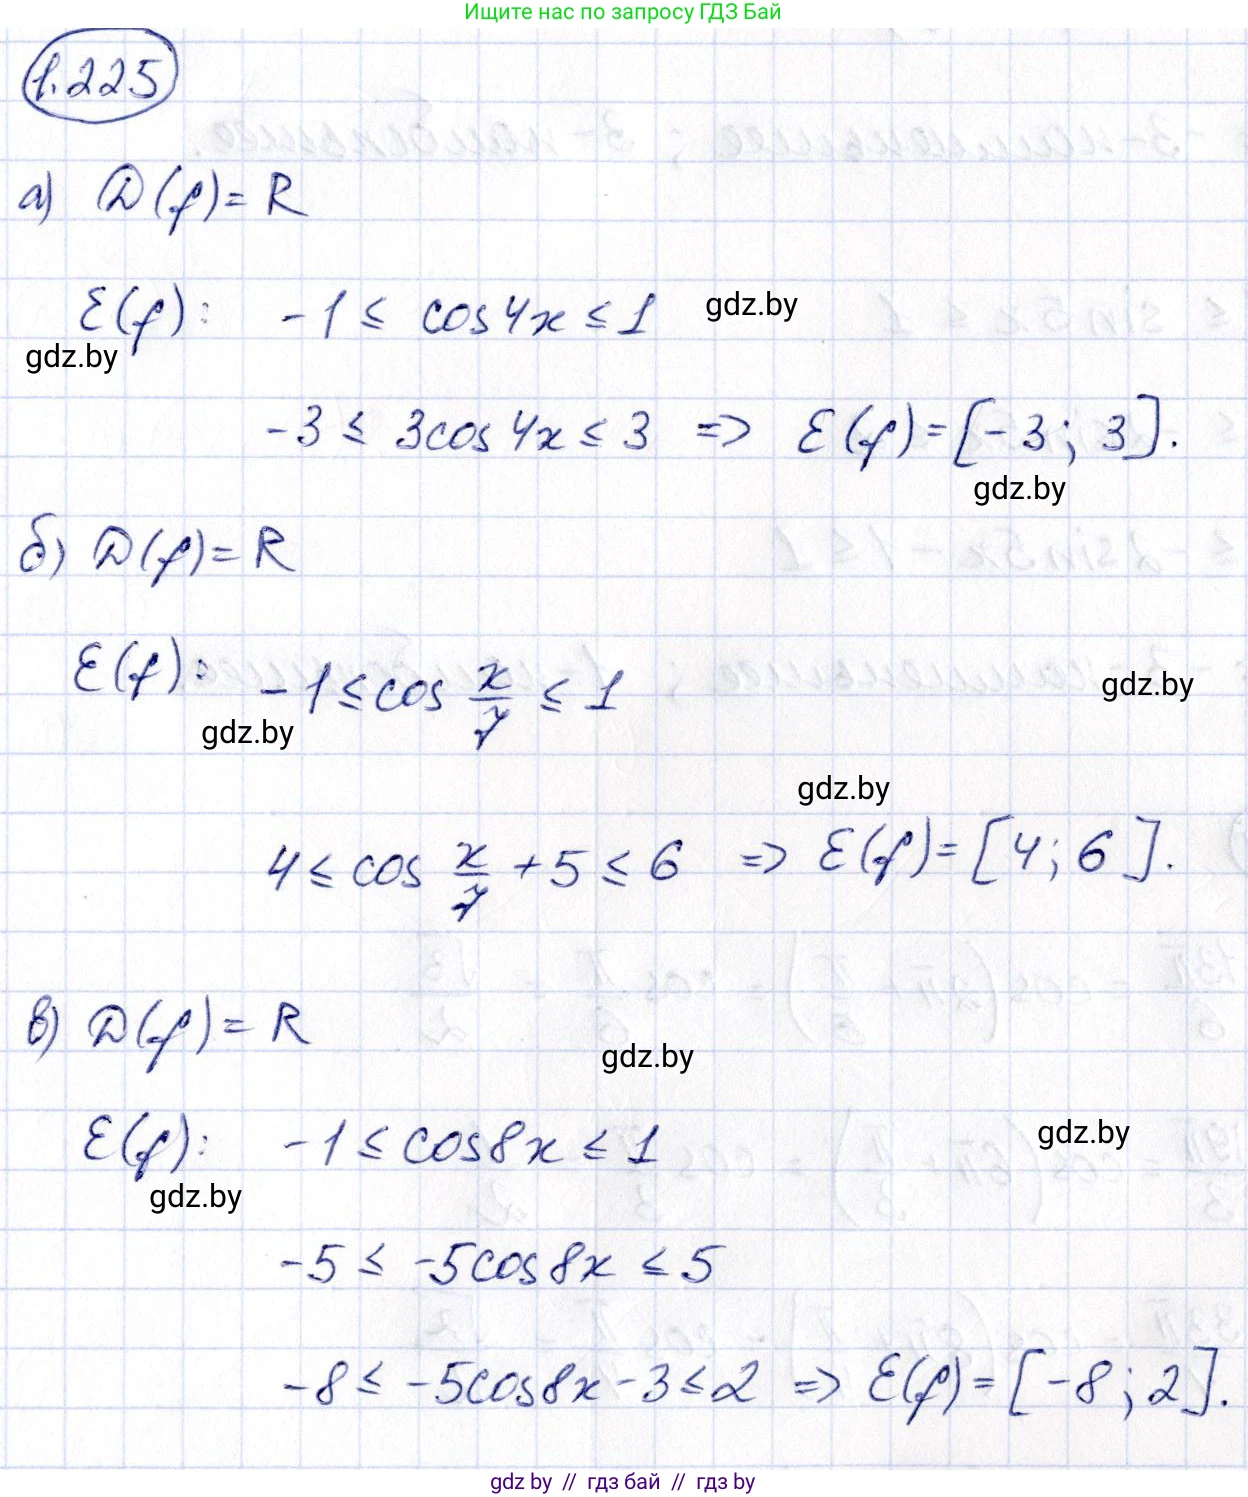 Ищите нас по запросу ГДЗ Бай
1.225
а) D(f) = R
E(f): -1 ≤ cos4x ≤ 1
gdz.by
gdz.by
-3 ≤ 3cos4x ≤ 3 => E(f) = [-3; 3].
gdz.by
б) D(f) = R
E(f): -1 ≤ cos x/7 ≤ 1
gdz.by
gdz.by
gdz.by
4 ≤ cos x/7 + 5 ≤ 6 => E(f) = [4; 6].
в) D(f) = R
gdz.by
E(f): -1 ≤ cos8x ≤ 1
gdz.by
gdz.by
-5 ≤ -5cos8x ≤ 5
-8 ≤ -5cos8x - 3 ≤ 2 => E(f) = [-8; 2].
gdz.by // гдз бай // гдз by